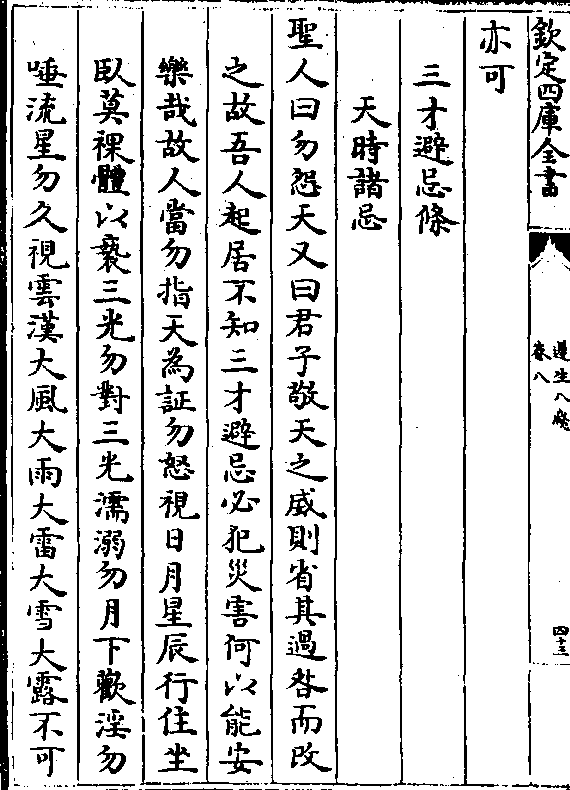 欽定四庫全書
遵生八牋
卷八
四十三
亦可
三才避忌條
天時諸忌
聖人曰勿怨天又曰君子敬天之威則省其過咎而改
之故吾人起居不知三才避忌必犯災害何以能安
樂哉故人當勿指天為証勿怒視日月星辰行住坐
臥莫裸體以褻三光勿對三光濡溺勿月下歡淫勿
唾流星勿久視雲漢大風大雨大雷大雪大露不可